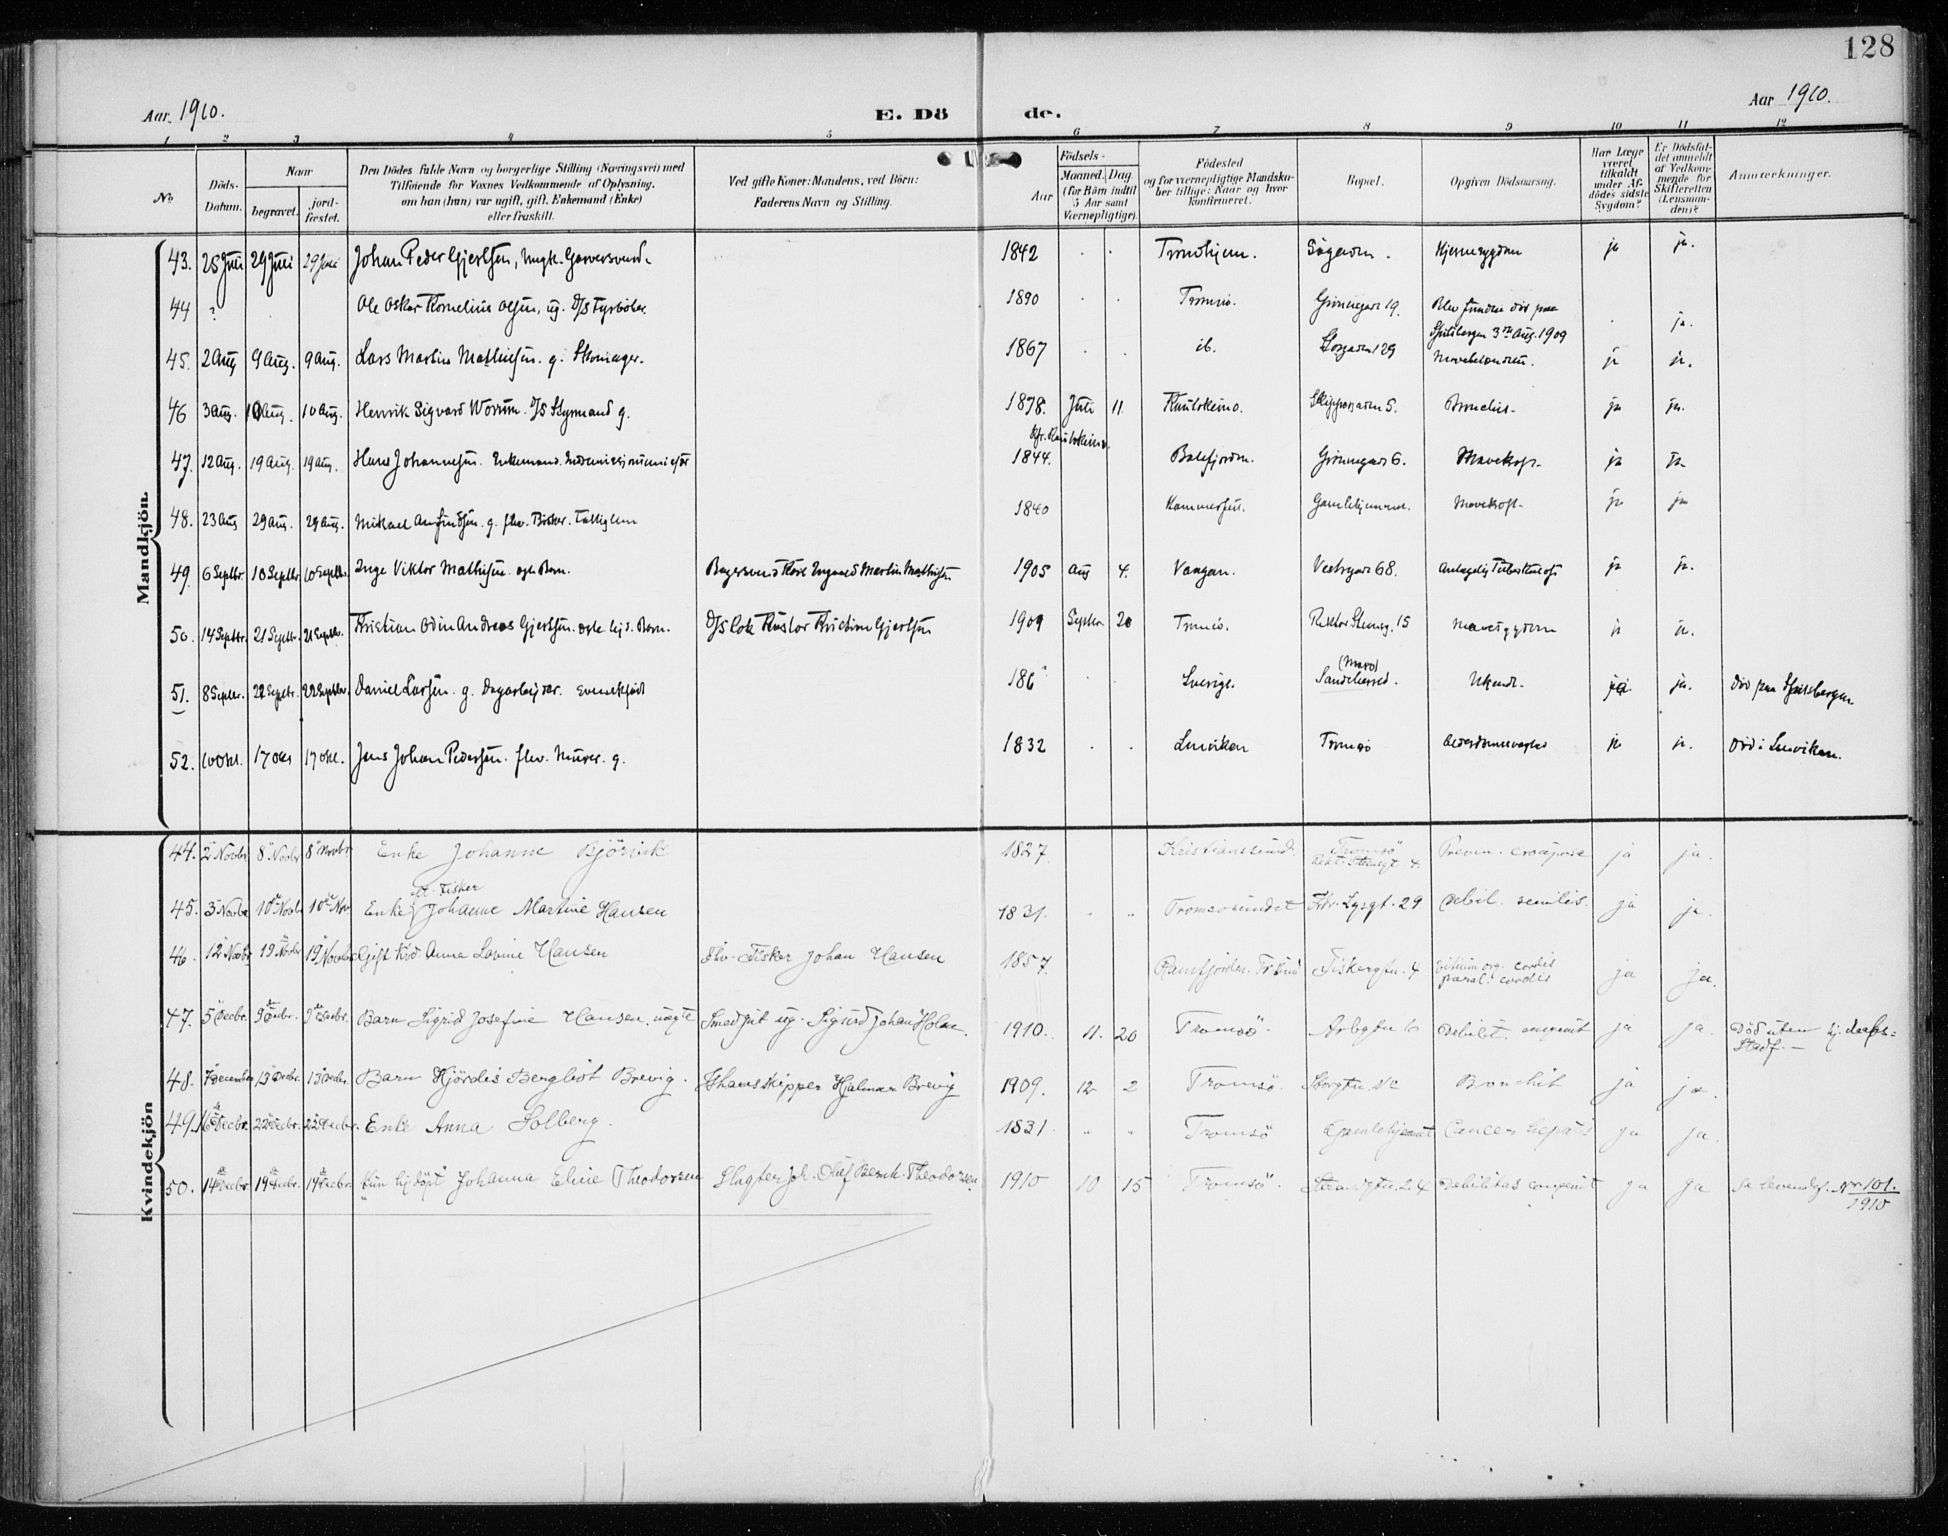 128
Aar 1910.
E. Dö de.
Aar 1910.
1 2 3 4 5 6 7 8 9 10 11 12
No
Döds-Datum.
Naar
begravet.
jord-fæstet.
Den Dödes fulde Navn og borgerlige Stilling (Næringsvei) med
Tilföiende for Voxnes Vedkommende af Oplysning,
om han (hun) var ugift, gift, Enkemand (Enke)
eller fraskilt.
Ved gifte Koner: Mandens, ved Börn:
Faderens Navn og Stilling.
Födsels-
Aar
Maaned. Dag.
(for Börn indtil
5 Aar samt
Værnepligtige).
Födested
og for værnepligtige Mandska-
ber tillige: Naar og hvor
konfirmeret.
Bopæl.
Opgiven Dödsaarsag.
Har Læge
været
tilkaldt
under Af-
dödes sidste
Sygdom?
Er Dödsfal-
det anmeldt
af Vedkom-
mende for
Skifteretten
(Lensman-
den)?
Anmærkninger.
Mandkjön.
43. 25 Juli 29 Juli 29 Juli Johan Peder Gjertsen, Ungk. Garversvend. 1842 Trondhjem. Hjernesygdom ja ja.
44 ? Ole Oskar Kornelius Olsen, ug. D/S Fyrböter. 1890 Tromsö. Grönnegad 19. Blev funden död paa
Spitsbergen 3die Aug. 1909 ja.
45. 2 Aug 9 Aug. 9 Aug. Lars Martin Mathisen. g. 1867 ib. Storgaden 129 ja ja.
46 3 Aug. 10 Aug. 10 Aug. Henrik Sigvard Worum. D/S Styrmand g. 1878. Juli 11. Skippergaden 5. ja ja.
47. 12 Aug. 19 Aug. 19 Aug. Hans Johannesen. Enkemand. 1844. Balsfjorden. Grönnegad 6. Mavekræft. ja ja
48. 23 Aug 29 Aug. 29 Aug. Mikael Amundsen. g. fhv. Fisker. Fattiglem 1840 Hammerfest. Gamlehjemmet. Mavekræft. ja ja
49. 6 Septbr. 10 Septbr. 10 Septbr. Inge Viktor Mathisen. egte Barn. Bagersvend Karl Ingvald Martin Mathisen 1905 Aug 4. Vaagan. Vestregad 68. ja ja.
50. 14 Septbr. 21 Septbr. 21 Septbr. Kristian Odin Andreas Gjertsen. egte Barn. Kristian Gjertsen 1909 Septbr 20 Tromsö. 15 Mavesygdom ja ja.
51. 8 Septbr. 22 Septbr. 22 Septbr. Daniel Larsen. g. Dagarbejder. Svenskfödt 186 Sverige. Sandehered. Ukjendt. ja ja. Död paa Spitsbergen
52. 10 Okt. 17 Okt 17 Okt. Jens Johan Pedersen. fhv. Murer. g. 1832 Lenviken Tromsö Alderdomssvaghed ja ja. Död i Lenviken.
Kvindekjön
44. 2 Novbr 8 Novbr 8 Novbr Enke Johanne Björvik 1827. Kristianssund. Tromsö
Rekt. Steensgt. 4. ja ja.
45. 3 Novbr 10 Novb 10 Nov Enke eft. Fisker Johanne Martine Hansen 1831. Tromsösundet Fdr. Lysgt. 29 Debil. senilis. ja ja.
46. 12 Novbr 19 Novbr 19 Novbr Gift Kvd Anna Lovine Hansen Fhv. Fisker Johan Hansen 1857. Ramfjorden. Fiskergtn. 4 Vitium org. cordis
paral. cordis ja ja.
47. 5 Decbr. 9 Decbr. 9 Decbr. Barn Sigrid Josefine Hansen, uægte Smed gut ug. Sigurd Johan Holm. 1910. 11. 20 Tromsö. Arbgtn 6 Debilit. congenit ja ja. Död uten hj. daabs-
Stadf.—
48. 7 December 13 Decbr. 13 Decbr. Barn Hjördis Bergliot Brevig. Ishavsskipper Hjalmar Brevig 1909. 12 2 Tromsö. Storgtn. Bronchit ja ja.
49. 16 Decbr. 22 Decbr. 22 Decbr. Enke Anna Solberg. 1831. Tromsö Gamlehjemmet Cancer hepatis ja ja.
50. 14 Decbr. 19 Decbr. 19 Decbr. Johanna Eline Theodorsen Slagter Joh. Oluf Bernh. Theodorsen. 1910 10 15 Tromsö. Strandgtn. 24 Debilitas congenit ja ja Se levendef. Nr 101.
1910